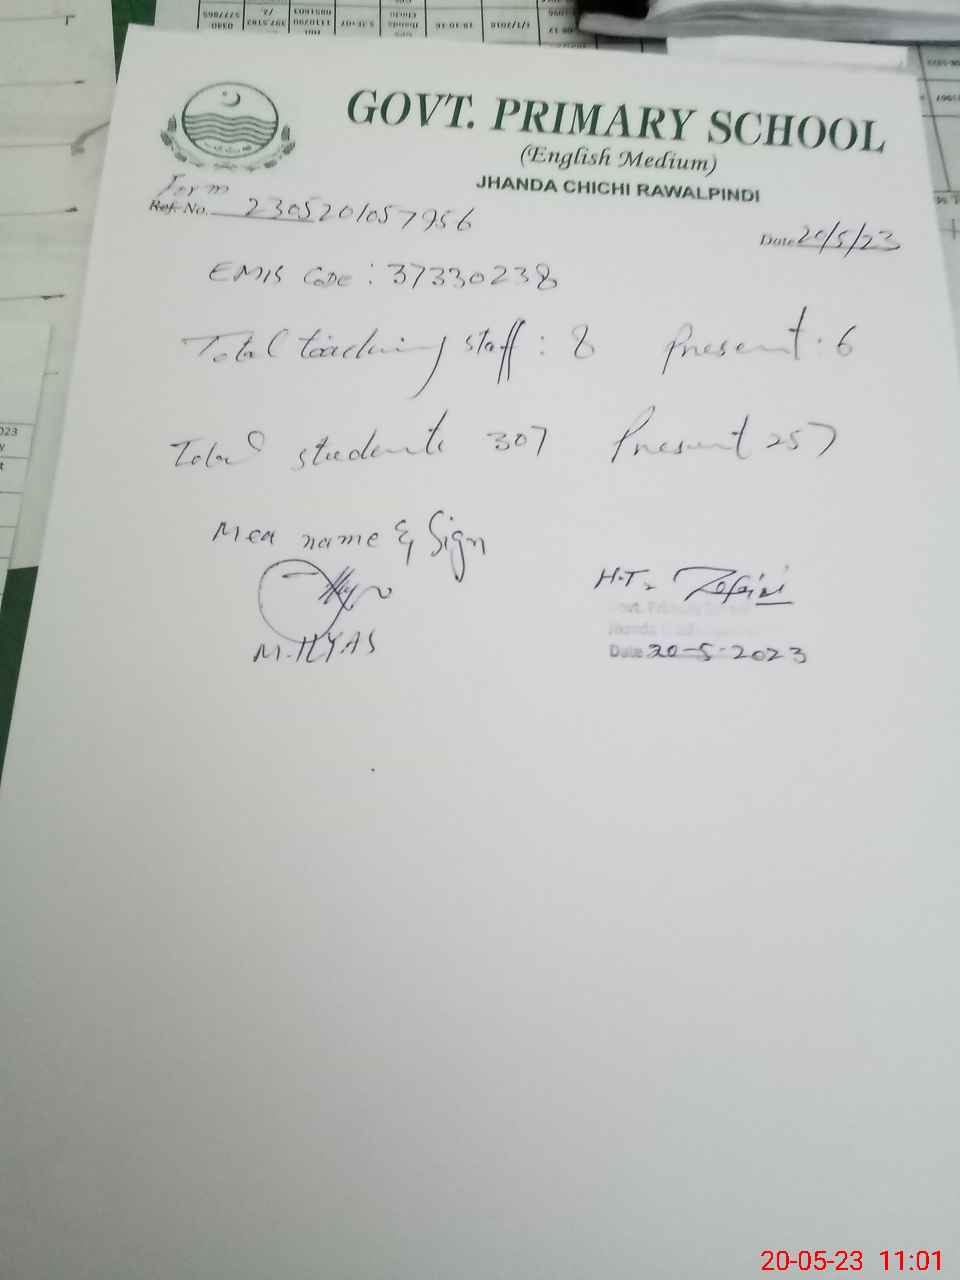 GOVT. PRIMARY SCHOOL
(English Medium)
JHANDA CHICHI RAWALPINDI
Form
Ref. No. 2305201057956
Date 20/5/23
EMIS Code : 37330238
Total teaching staff : 8 Present . 6
Total students 307 Present 257
Mea name & Sign
M. ILYAS
H.T.
Govt. Primary
Jhanda
Date 20-5-2023
20-05-23 11:01